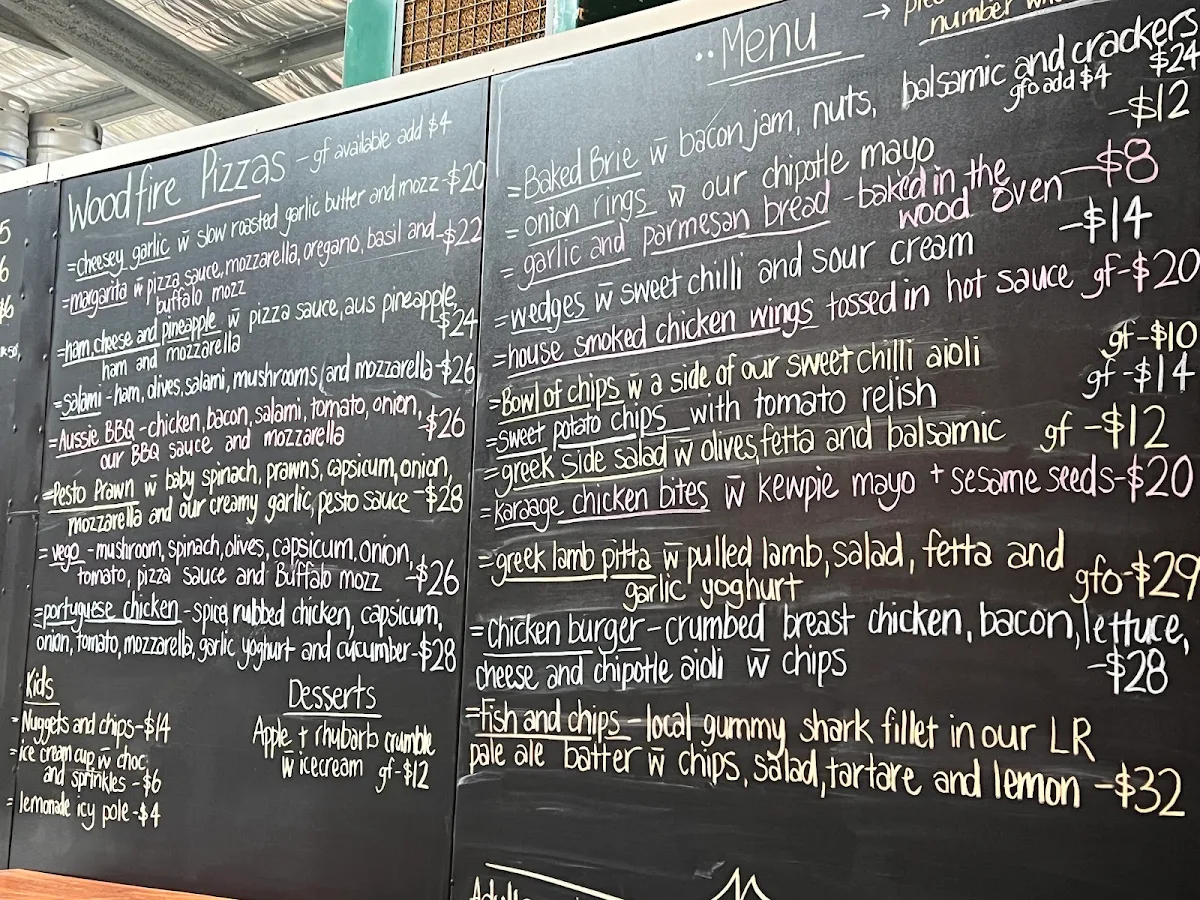 Woodfire Pizzas - gf available add $4
=cheesey garlic w̄ slow roasted garlic butter and mozz-$20
=margarita w̄ pizza sauce, mozzarella, oregano, basil and -$22
buffalo mozz
=ham, cheese and pineapple w̄ pizza sauce, aus pineapple,
ham and mozzarella $24
=salami - ham, olives, salami, mushrooms, and mozzarella-$26
=Aussie BBQ - chicken, bacon, salami, tomato, onion,
our BBQ sauce and mozzarella -$26
=Pesto Prawn w̄ baby spinach, prawns, capsicum, onion,
mozzarella and our creamy garlic, pesto sauce -$28
=vego - mushroom, spinach, olives, capsicum, onion,
tomato, pizza sauce and Buffalo mozz -$26
=portuguese chicken - spice rubbed chicken, capsicum,
onion, tomato, mozzarella, garlic yoghurt and cucumber-$28
Kids
=Nuggets and chips-$14
=ice cream cup w̄ choc
and sprinkles -$6
=lemonade icy pole -$4
Desserts
Apple + rhubarb crumble
w̄ icecream gf-$12
..Menu
→
number
=Baked Brie w̄ bacon jam, nuts, balsamic and crackers
gfo add $4 $24
=onion rings w̄ our chipotle mayo -$12
=garlic and parmesan bread - baked in the
wood oven -$8
=wedges w̄ sweet chilli and sour cream -$14
=house smoked chicken wings tossed in hot sauce gf-$20
=Bowl of chips w̄ a side of our sweet chilli aioli gf-$10
=sweet potato chips with tomato relish gf-$14
=greek side salad w̄ olives, fetta and balsamic gf-$12
=karaage chicken bites w̄ kewpie mayo + sesame seeds-$20
=greek lamb pitta w̄ pulled lamb, salad, fetta and
garlic yoghurt gfo-$29
=chicken burger - crumbed breast chicken, bacon, lettuce,
cheese and chipotle aioli w̄ chips -$28
=fish and chips - local gummy shark fillet in our LR
pale ale batter w̄ chips, salad, tartare and lemon -$32